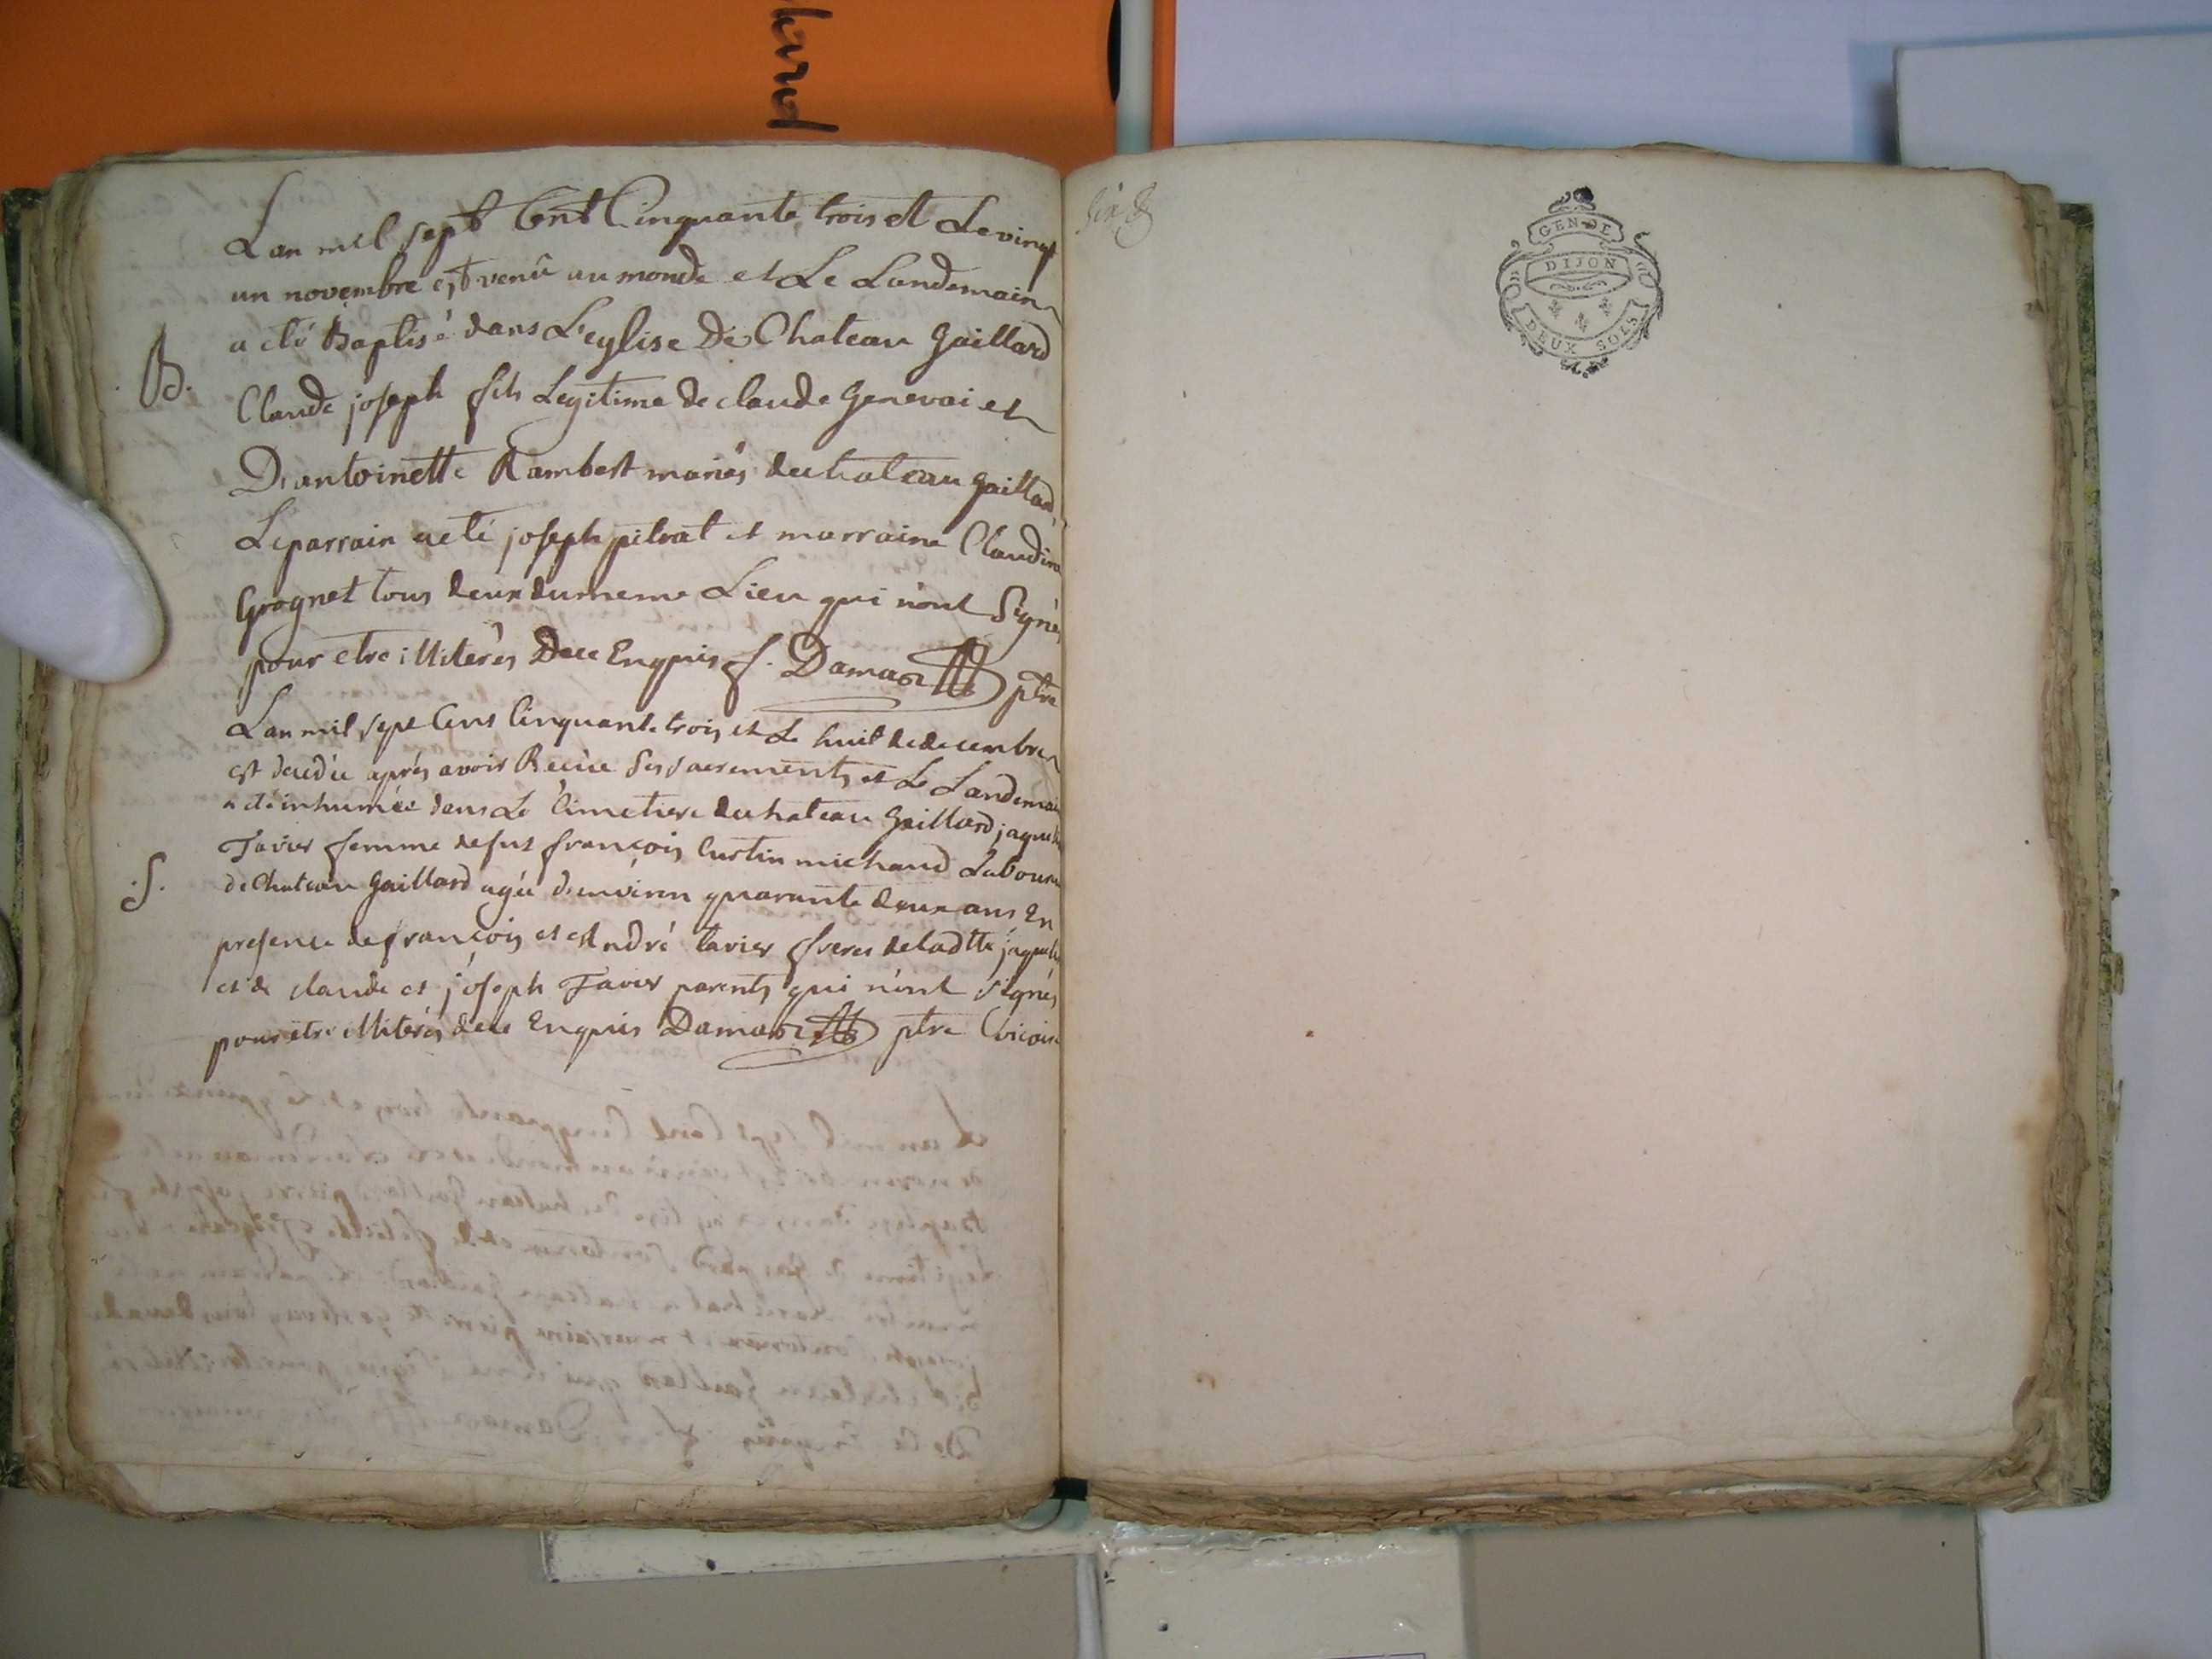 Lan mil sept Cent Cinquante trois et Le vingt
un novembre est venû au monde et Le Landemain
a eté Baptisé dans L'eglise De Chateau Gaillard
B.
Claude joseph fils Legitime de claude Genevai et
D'antoinette Rambert mariés de chateau gaillard,
Le parrain a eté joseph pitrat et marraine Claudine
Grognet tous deux du meme Lieu qui n'ont Signés
pour etre illiterés De ce Enquis f. Damas ptre
Lan mil sept Cens Cinquante trois et Le huit de decembre
est decedée aprés avoir Recüe Ses sacrements et Le Landemain
a eté inhumée dans Le Cimetiere de chateau Gaillard jaque
Tavier femme de fut françois Curtin michaud Labour
.S.
de Chateau Gaillard agée d'environ quarante deux ans En
presence de françois et André tavier freres de ladtte jaque
et de claude et joseph Tavier parents qui n'ont signés
pour etre illiterés de ce Enquis Damas ptre Vicaire
GEN DE
DIJON
DEUX SOLS
lard